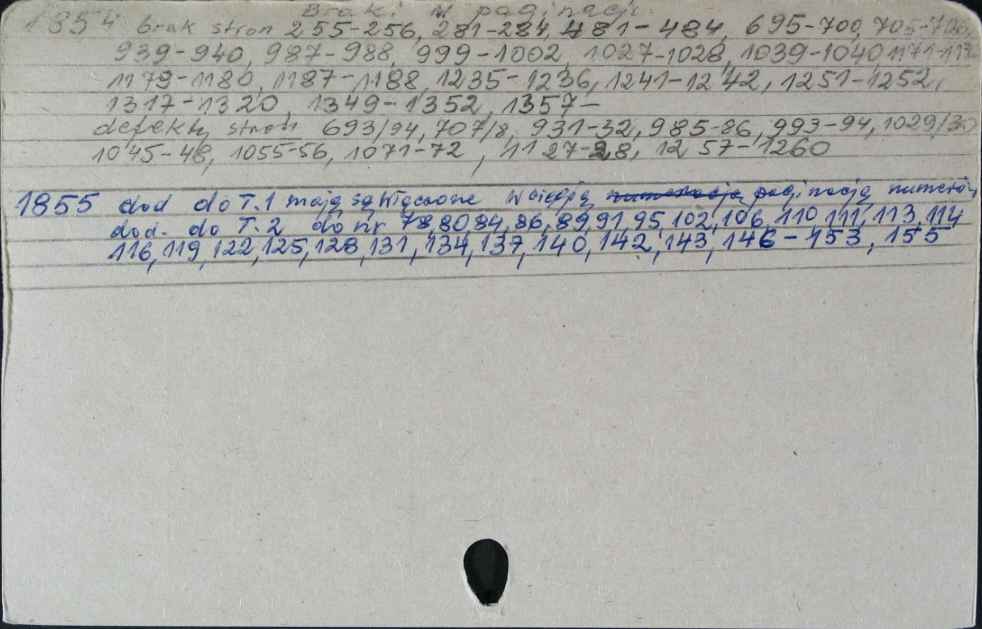 Braki w paginacji
1854 brak stron 255-256, 281-284, 481-484, 695-700, 705-706,
939-940, 987-988, 999-1002, 1027-1028, 1039-1040, 1171-1172
1179-1180, 1187-1188, 1235-1236, 1241-1242, 1251-1252,
1317-1320, 1349-1352, 1357-
defekty stron 693/94, 707/8, 931-32, 985-86, 993-94, 1029/30
1045-48, 1055-56, 1071-72, 1127-28, 1257-1260
1855 dod do T.1 mają są włączone w ciągłą numerację paginację numerów
dod. do T.2 do nr 78,80,84,86,89,91,95,102,106,110,111,113,114
116,119,122,125,128,131,134,137,140,142,143,146-153,155